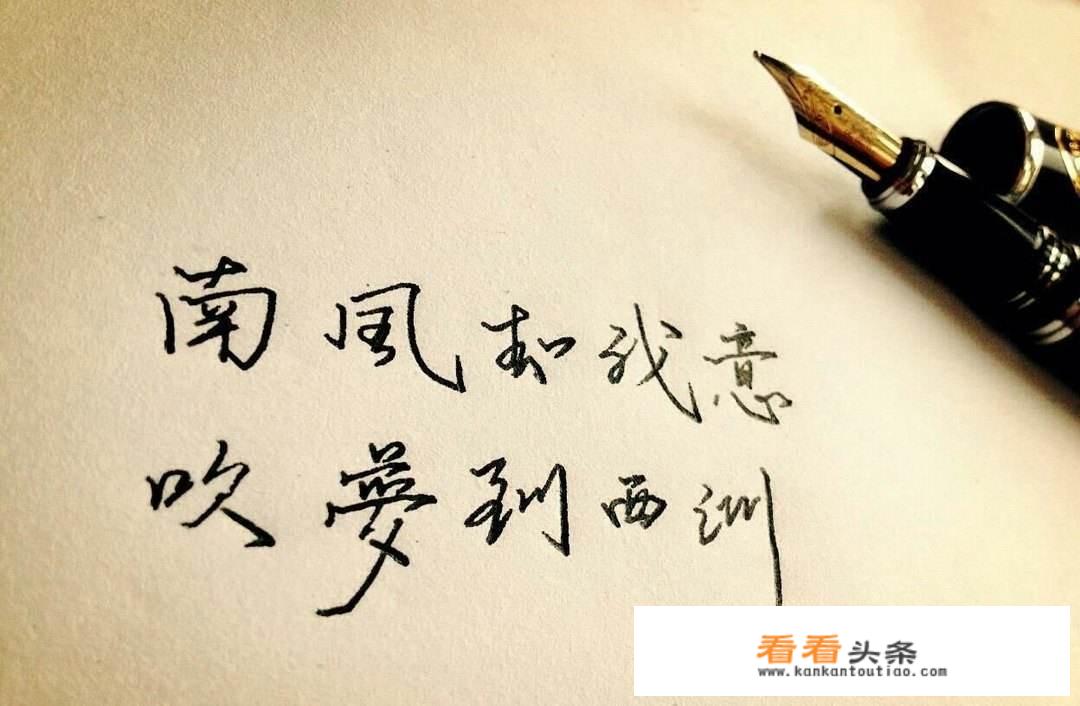 南風知我意
吹夢到西洲
看看头条
www.kankantoutiao.com